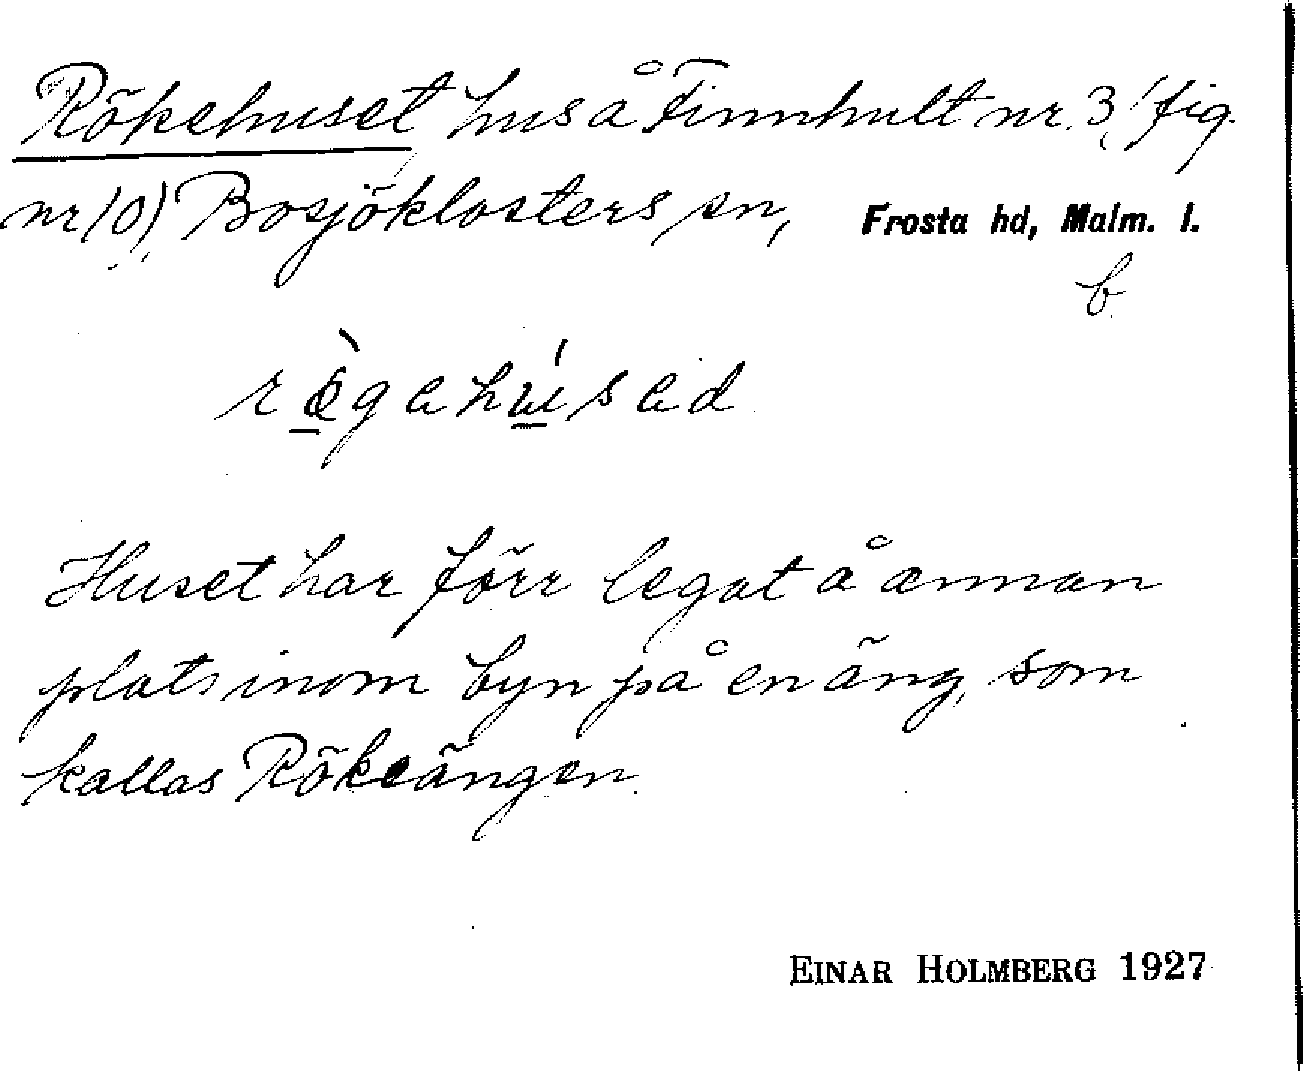 Rökehuset, hus å Finnhult nr. 3, (fig.
nr 10) Bosjöklosters sn, Frosta hd, Malm. l.
b
Huset har förr legat å annan
plats inom byn på en äng, som
kallas Rökeängen.
EINAR HOLMBERG 1927